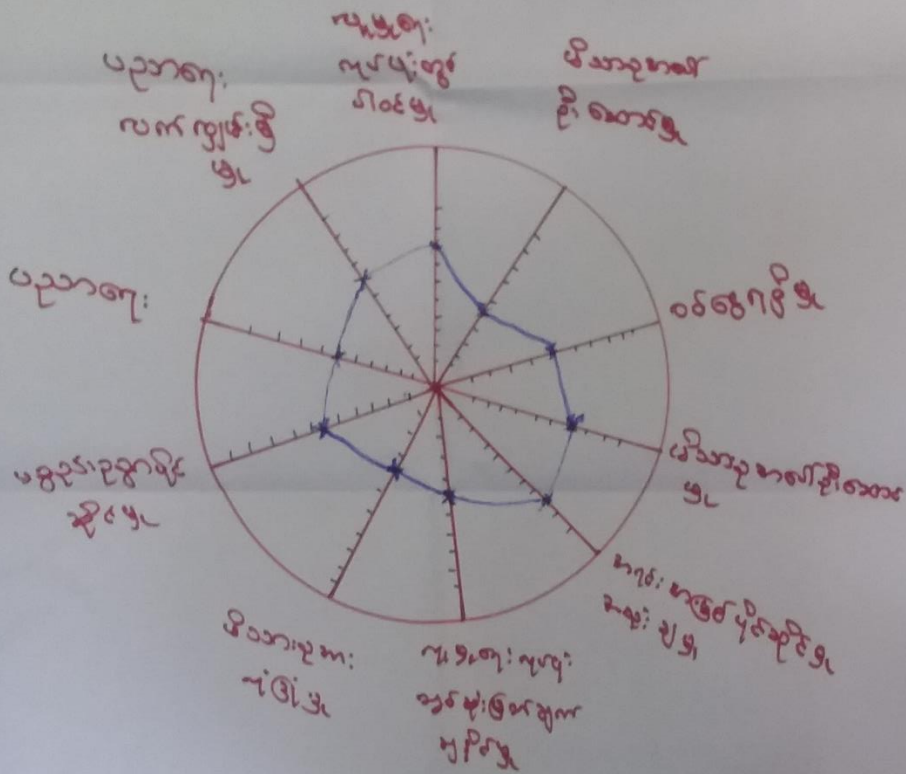 လူမှုရေး
လုပ်ငန်းတွင်
ပါဝင်မှု
မိသားစုအပေါ်
ဦးဆောင်မှု
ဝင်ငွေရရှိမှု
မိသားစုအပေါ်ဦးဆောင်
မှု
အရင်းအမြစ်ပိုင်ဆိုင်မှု
အသုံးချမှု
လူမှုရေးလုပ်ငန်း
တွင်ဆုံးဖြတ်ချက်
ချနိုင်မှု
မိသားစုအား
မှု
ပစ္စည်းဥစ္စာပိုင်
ဆိုင်မှု
ပညာရေး
ပညာရေး
လက်လှမ်းမှီ
မှု